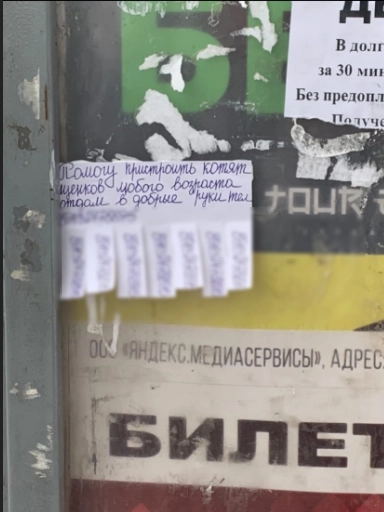 В долг
за 30 мин
Без предопл
Получе
Помогу пристроить котят
щенков любого возраста
отдам в добрые руки тел
TOUR
ООО «ЯНДЕКС.МЕДИАСЕРВИСЫ», АДРЕС:
БИЛЕТ